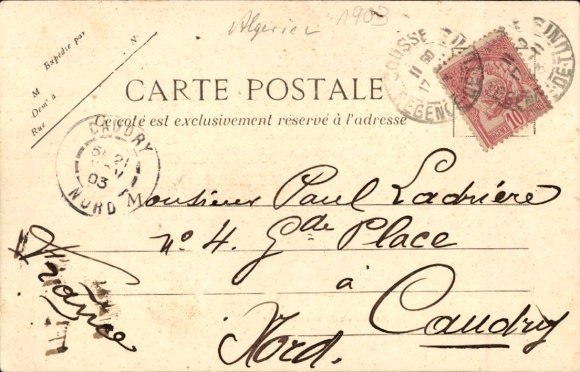 Algerien 1903
Expédié par
M
Demt à
Rue
CARTE POSTALE
Ce côté est exclusivement réservé à l'adresse
SOUSSE
REGENCE
10
CAUDRY
21
03
NORD
Monsieur Paul Ladrière
n° 4. Gde Place
à
Caudry
Nord.
France